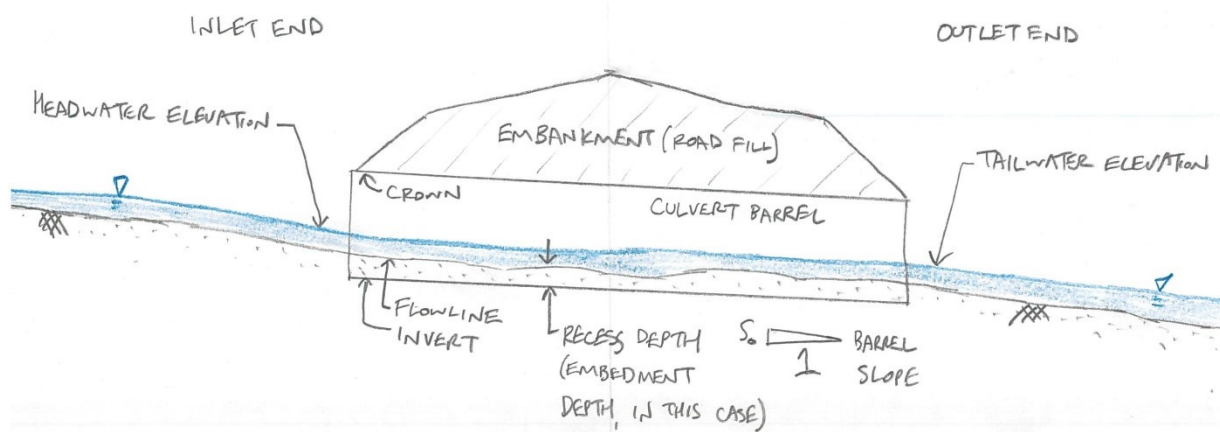 INLET END
OUTLET END
HEADWATER ELEVATION
EMBANKMENT (ROAD FILL)
TAILWATER ELEVATION
CROWN
CULVERT BARREL
FLOWLINE
INVERT
RECESS DEPTH
(EMBEDMENT
DEPTH, IN THIS CASE)
S₀
1
BARREL
SLOPE